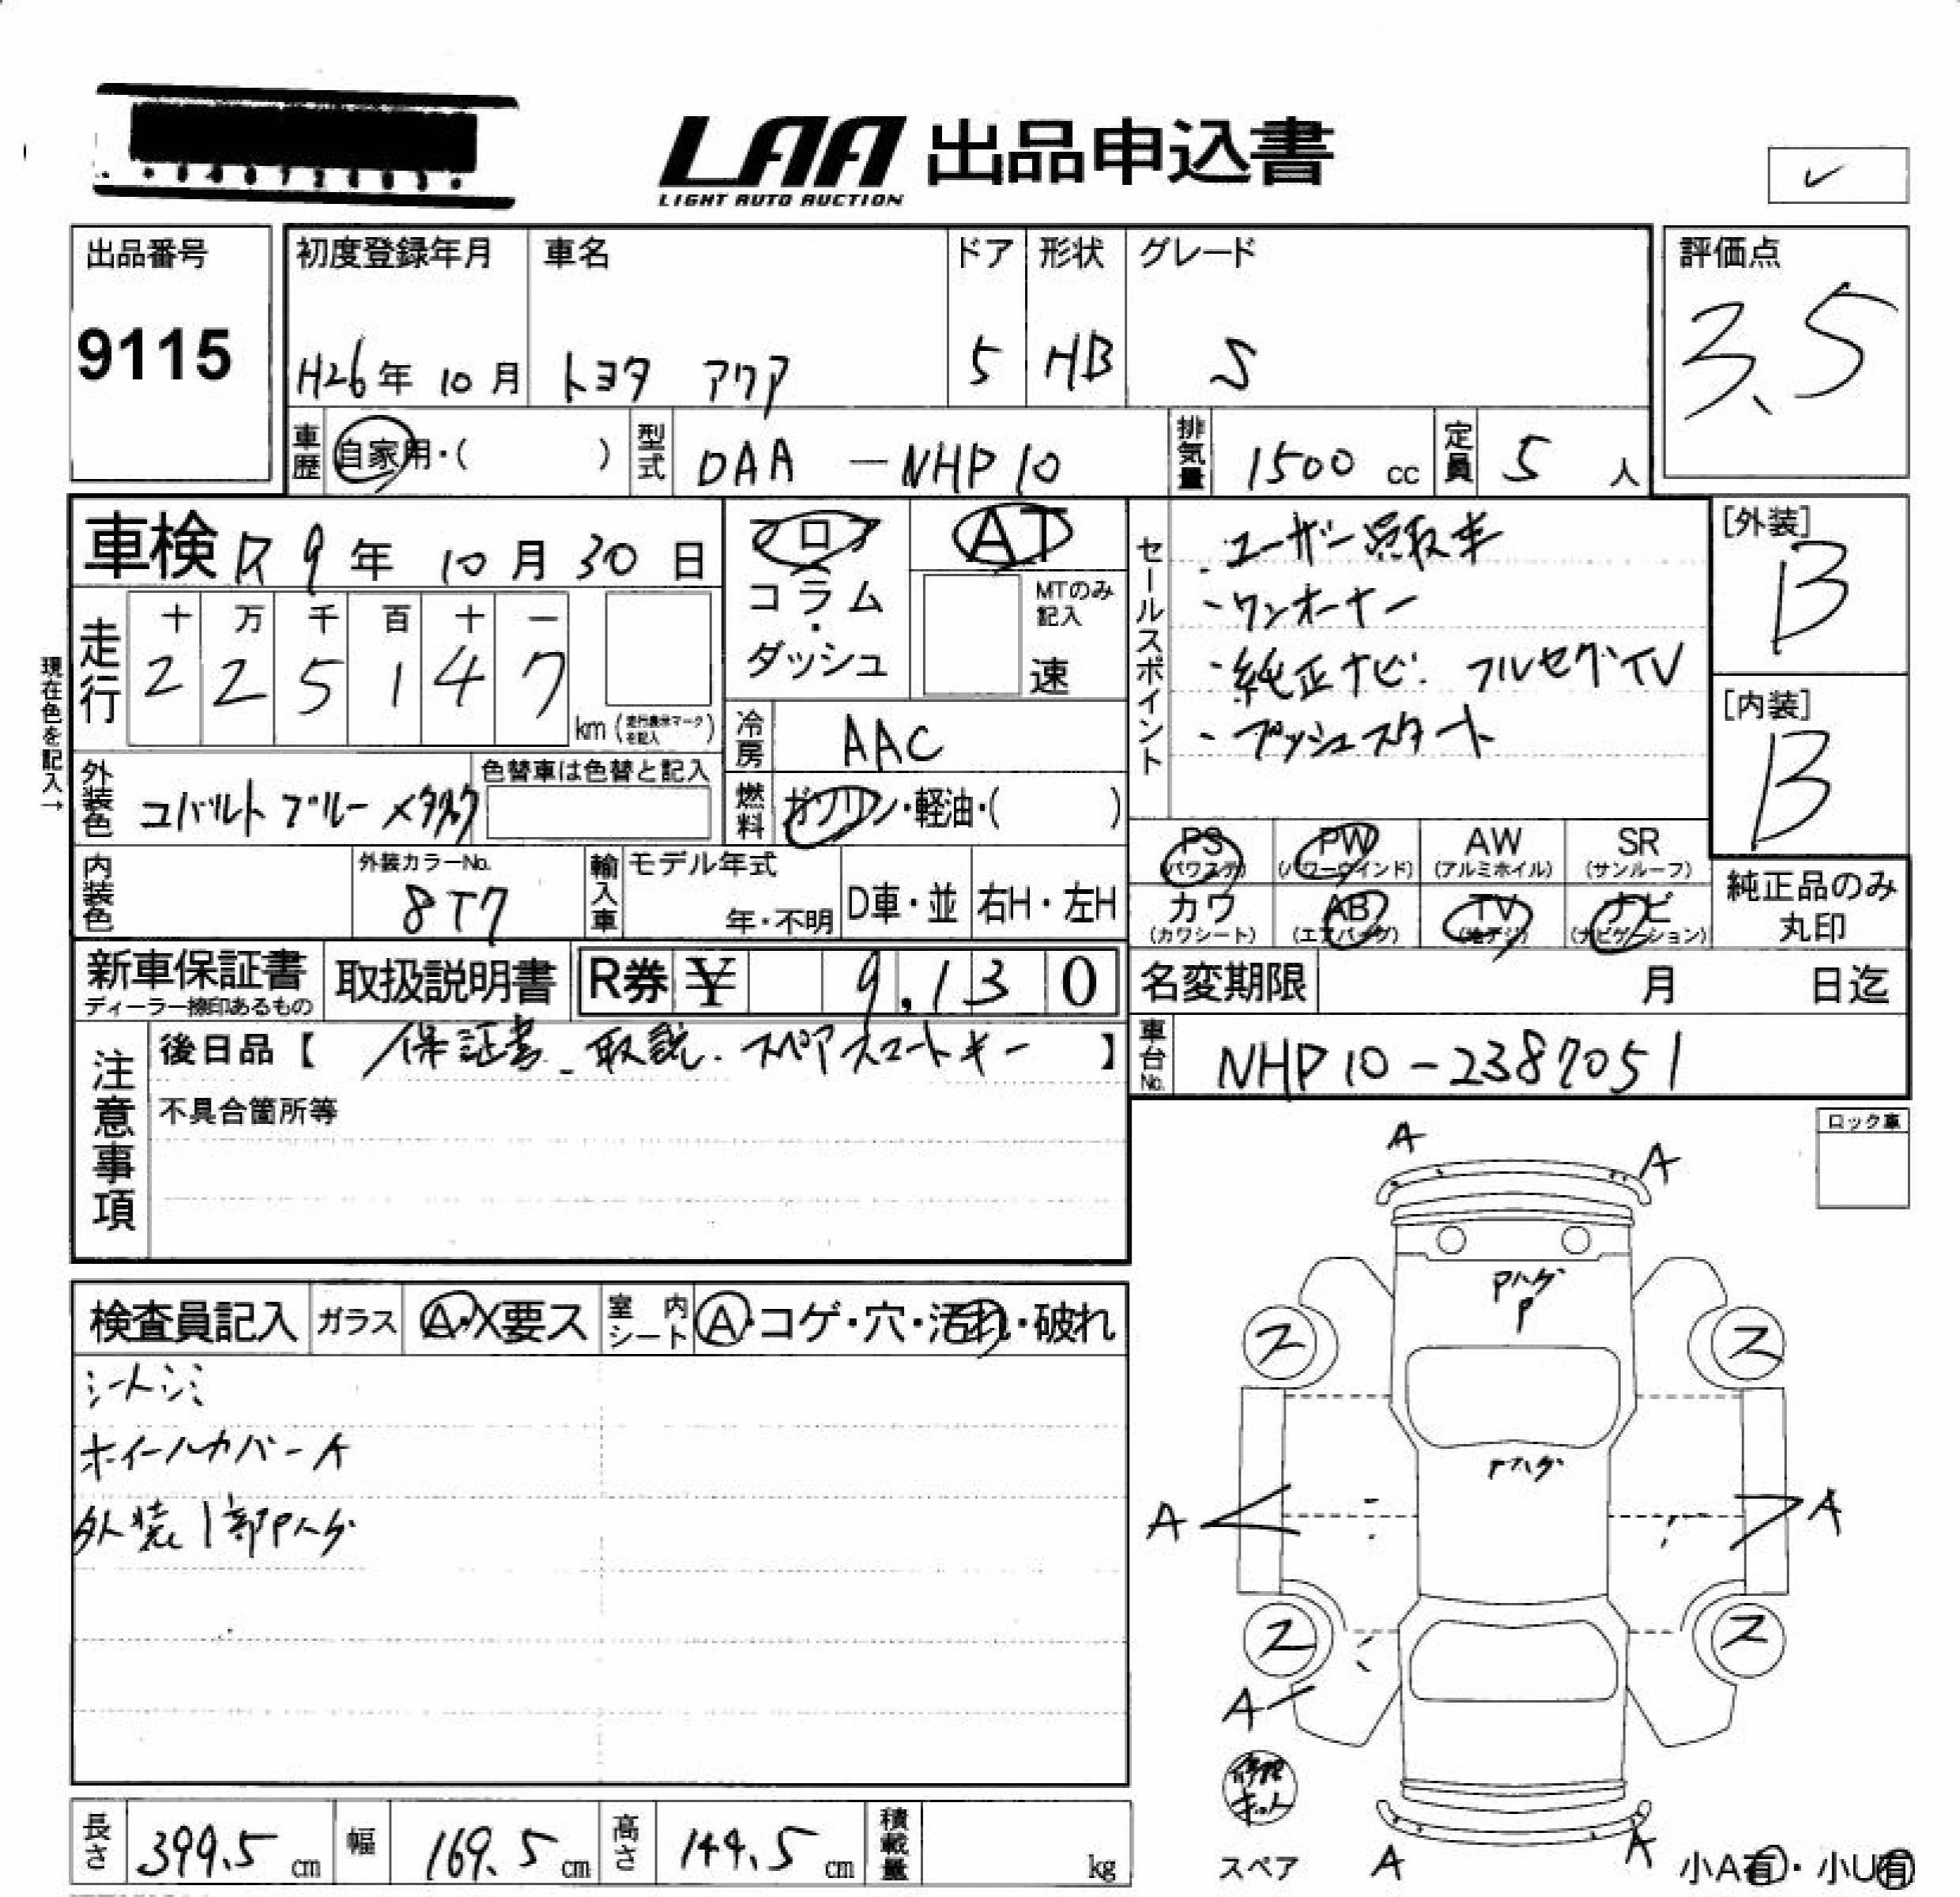 LAA 出品申込書
LIGHT AUTO AUCTION
✓
出品番号
9115
初度登録年月 車名 ドア 形状 グレード
H26年 10月 トヨタ アクア 5 HB S
評価点
3.5
車歴 自家用・( ) 型式 DAA -NHP10 排気量 1500 cc 定員 5 人
車検 R9年 10月 30日
フロア
コラム
・
ダッシュ
AT
MTのみ
記入
速
セールスポイント
・ユーザー買取車
・ワンオーナー
・純正ナビ. フルセグTV
・プッシュスタート
[外装]
B
[内装]
B
走行
十 万 千 百 十 一
2 2 5 1 4 7
km (走行表示マークを記入)
現在色を記入→
冷房 AAC
外装色 コバルトブルーメタリック
色替車は色替と記入
燃料 ガソリン・軽油・( )
PS (パワステ) PW (パワーウインド) AW (アルミホイル) SR (サンルーフ)
カワ (カワシート) AB (エアバッグ) TV (地デジ) ナビ (ナビゲーション)
純正品のみ
丸印
内装色
外装カラーNo.
8T7
輸入車 モデル年式
年・不明 D車・並 右H・左H
新車保証書
ディーラー捺印あるもの
取扱説明書
R券 ¥ 9,130
名変期限 月 日迄
車台No. NHP10-2387051
注意事項
後日品【 保証書.取説.スペアスマートキー 】
不具合箇所等
ロック車
検査員記入 ガラス A・X要ス 室内シート A・コゲ・穴・汚れ・破れ
シートシミ
ホイールカバーA
外装1部Pハゲ
A
A
Pハゲ
P
ス
ス
Pハゲ
A
A
ス
ス
A
修理
キット
スペア
A
A
小A有・小U有
長さ 399.5 cm 幅 169.5 cm 高さ 144.5 cm 積載量 kg